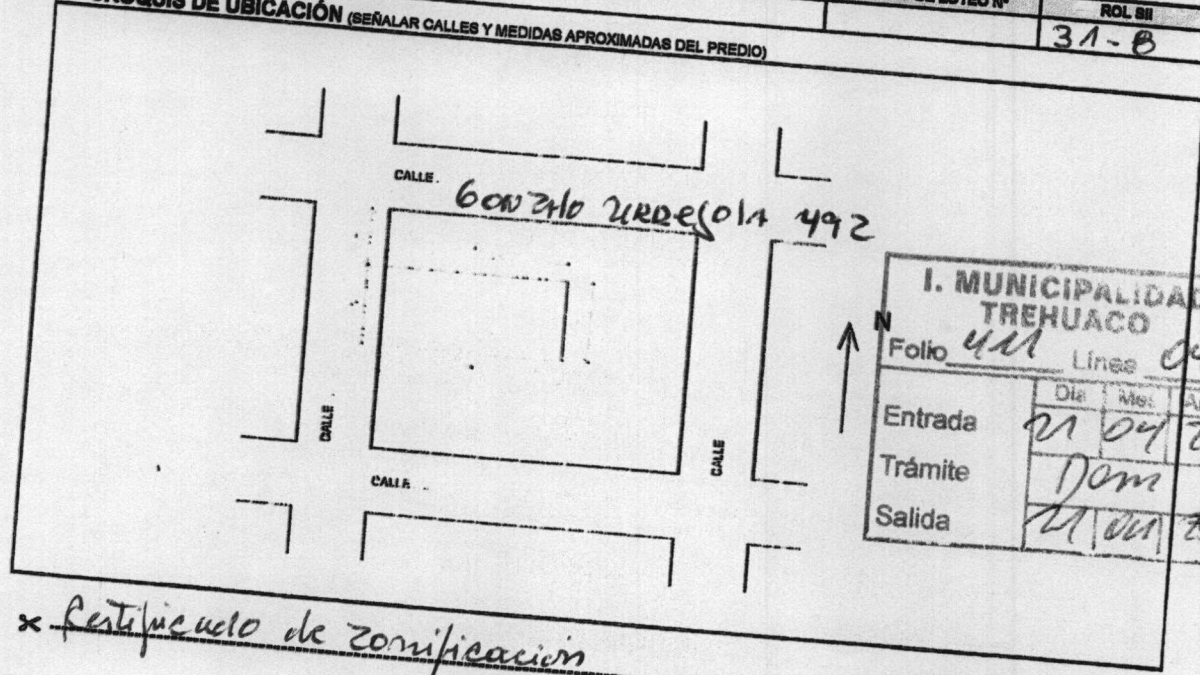 CROQUIS DE UBICACIÓN (SEÑALAR CALLES Y MEDIDAS APROXIMADAS DEL PREDIO)
ROL SII
31-8
CALLE
GONZALO URREJOLA 492
CALLE
CALLE
CALLE
N
I. MUNICIPALIDAD
TREHUACO
Folio 411 Línea 04
Día Mes
Entrada 21 04
Trámite Dom
Salida 21 04
* Certificado de zonificación